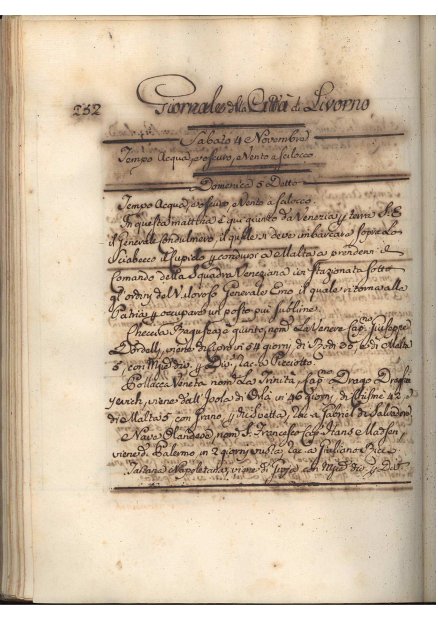 252 Giornale della Città di Livorno
Sabato 4 Novembre
Tempo Acqua, e oscuro, e Vento a scilocco
Domenica 5 Detto
Tempo Acqua, e oscuro, e Vento a scilocco
In questa mattina è qui giunto da Venezia p terra S.E.
il Generale Condulmero, il quale si deve imbarcare sopra lo
Sciabecco il Cupido p condursi a Malta a prendere il
Comando della Squadra Veneziana in stazionata sotto
gl'ordini del Valoroso Generale Emo il quale ritorna alla
Patria p occupare un posto più sublime
Checcia Ragusea giunto, nom. La Venere Cap.no Giuseppe
viene di in 54 giorni di Bodi 26, e di Malta
5 con Mrzi div. p Div. rac. a
Pollacca Veneta nom. La Trinità, Cap.no Drago
viene dall'Isola di in 46 giorni, di 42, e
di Malta 5 con Grano, p rac. a di Salvadore
Nave Olandese nom. S. Francesco Cap. Hans Madsen
viene d. Palermo in 2 giorni vuota rac. a Giuliano
Tartana Napoletana, viene di con Mrzi div. p Div.